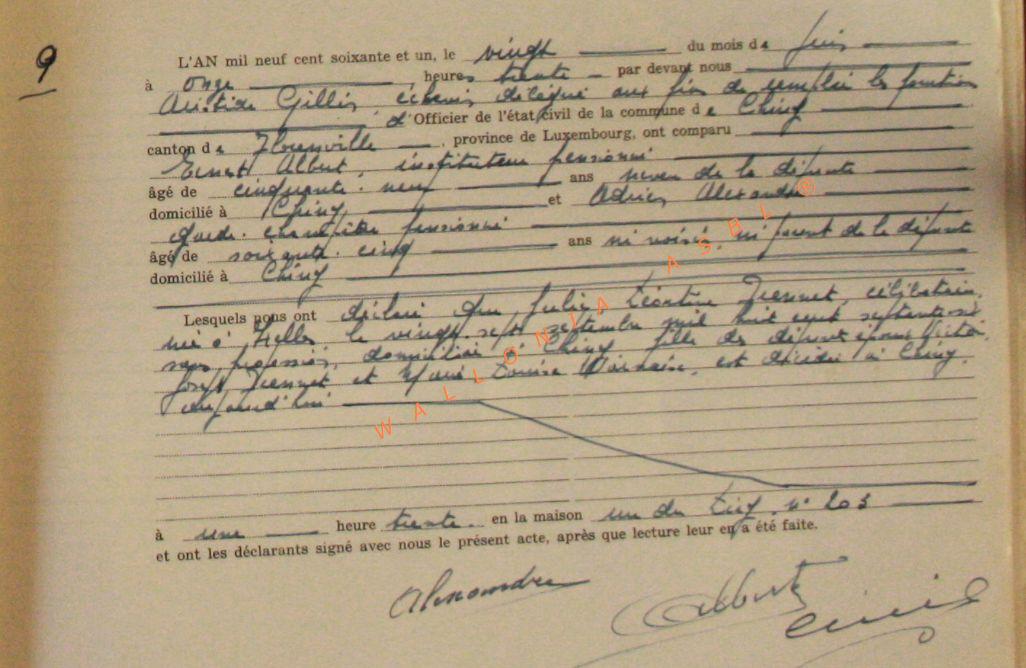 9
L'AN mil neuf cent soixante et un, le vingt du mois de juin
à onze heures trente par devant nous
Aristide Gillis, échevin délégué aux fins de remplir les fonctions
d'Officier de l'état civil de la commune de Chiny
canton de Florenville, province de Luxembourg, ont comparu
Ernest Albert, instituteur pensionné
âgé de cinquante-neuf ans neveu de la défunte
domicilié à Chiny et Adrien Alexandre
garde-champêtre pensionné
âgé de soixante-cinq ans ni voisin, ni parent de la défunte
domicilié à Chiny
Lesquels nous ont déclaré que Julie Léontine, célibataire,
née à le vingt-sept septembre mil huit cent
sans profession, domiciliée à Chiny fille des défunts époux
Joseph et Marie Louise, est décédée à Chiny,
aujourd'hui
à une heure trente en la maison rue du n° 203
et ont les déclarants signé avec nous le présent acte, après que lecture leur en a été faite.
Alexandre
Albert
WALLONIA ASBL ®